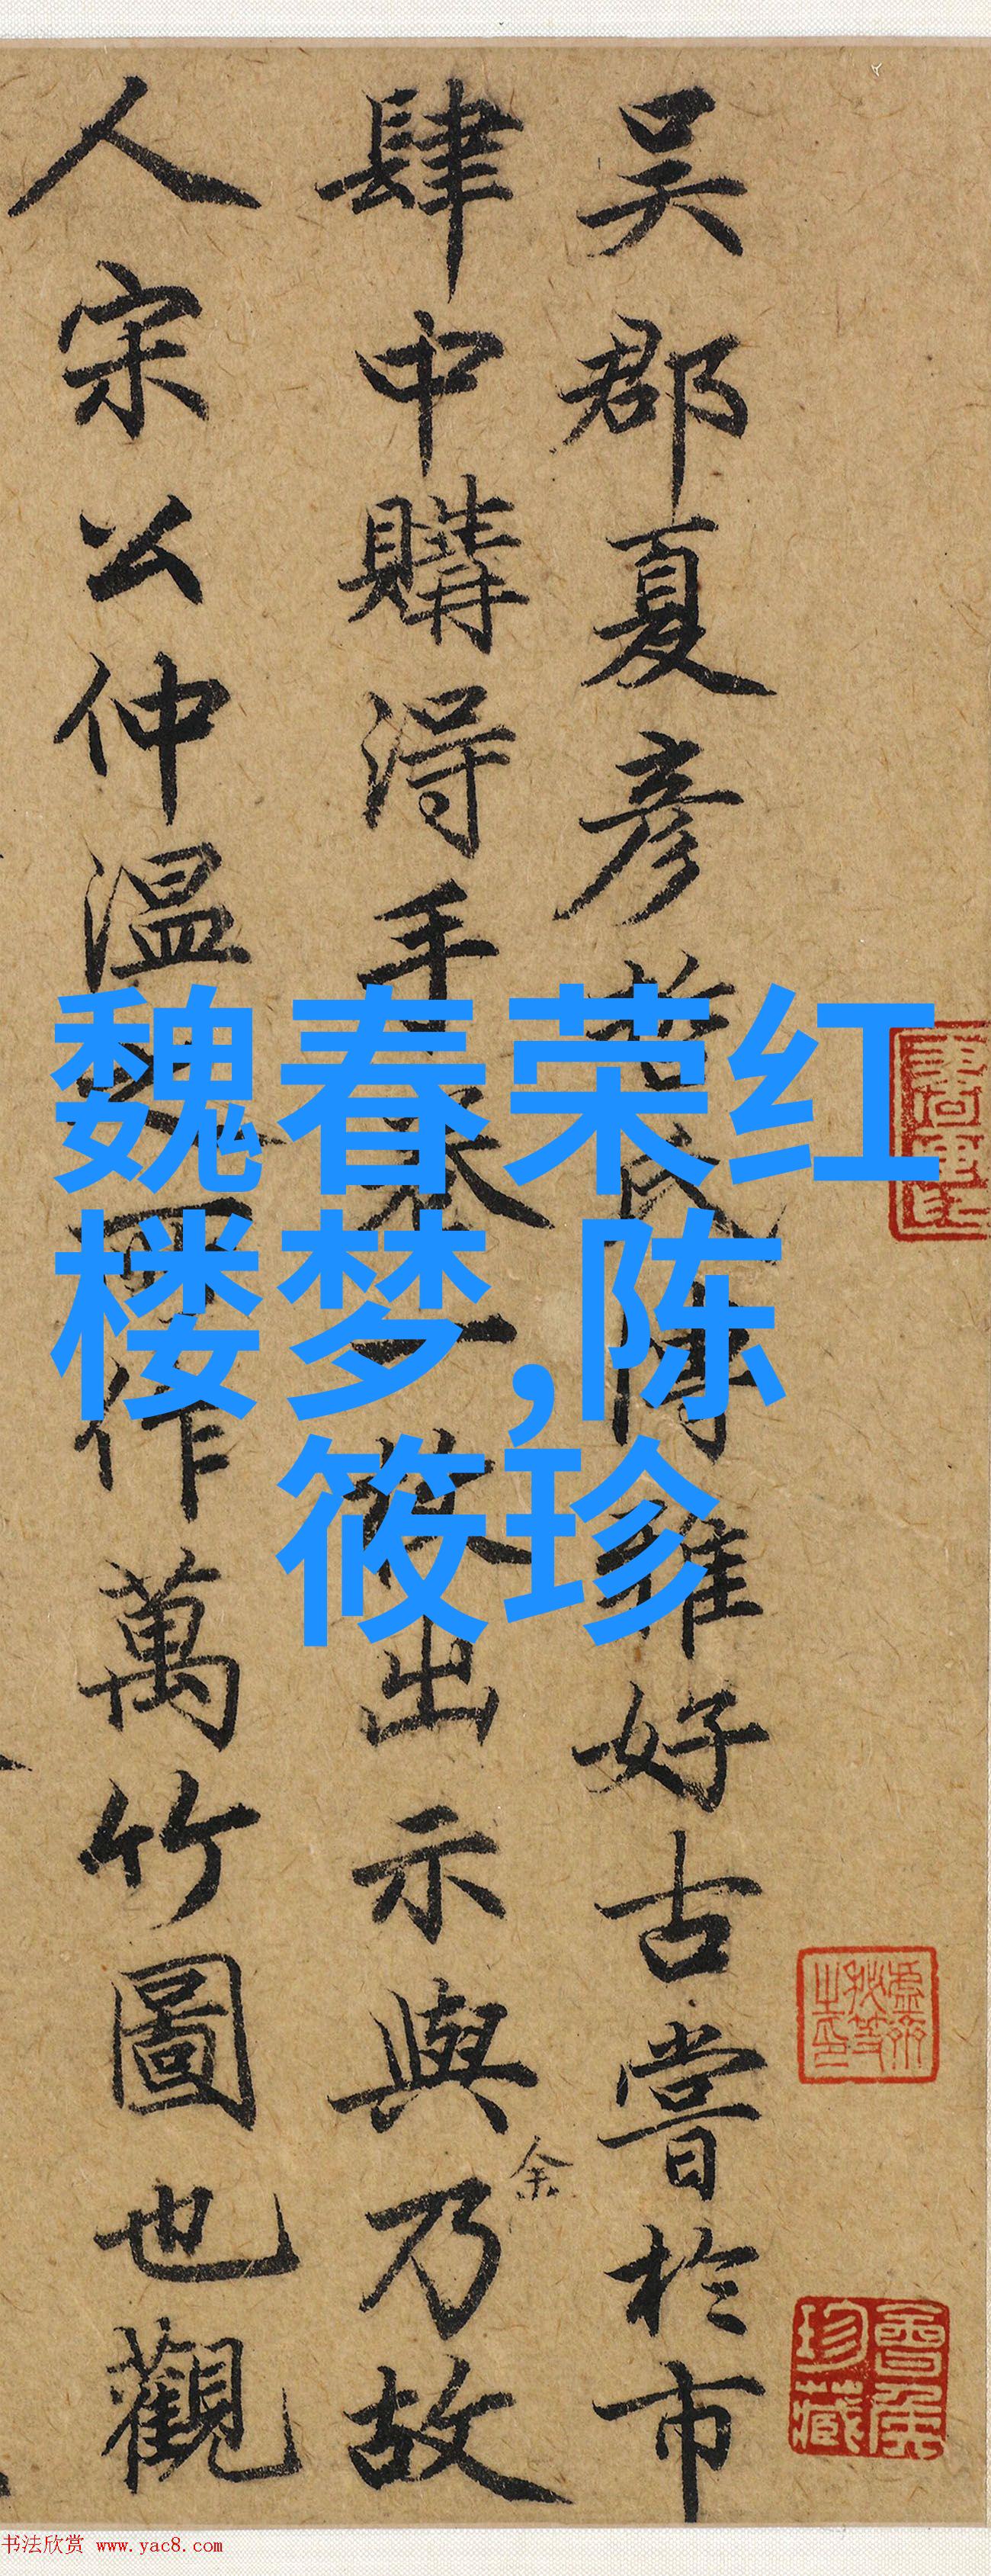 吴郡夏彦氏博雅好古嘗於市
肆中購得手卷一出示與乃故
余
人宋公仲温作萬竹圖也觀
魏春荣红
楼梦,陈
筱珍
珍藏
书法欣赏 www.yac8.com